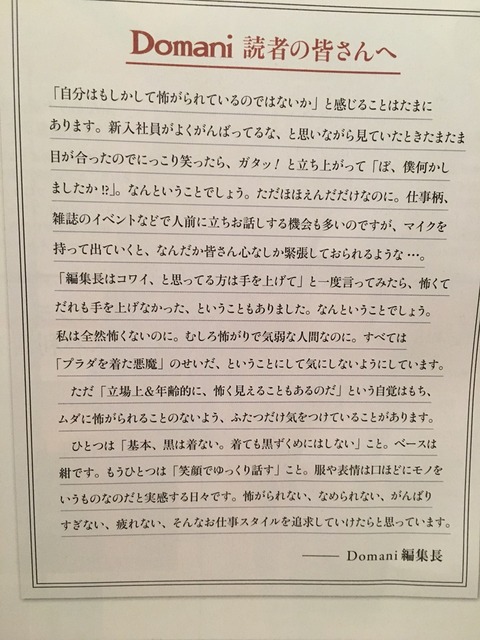 Domani 読者の皆さんへ
「自分はもしかして怖がられているのではないか」と感じることはたまに
あります。新入社員がよくがんばってるな、と思いながら見ていたときたまたま
目が合ったのでにっこり笑ったら、ガタッ！と立ち上がって「ぼ、僕何かし
ましたか!?」。なんということでしょう。ただほほえんだだけなのに。仕事柄、
雑誌のイベントなどで人前に立ちお話しする機会も多いのですが、マイクを
持って出ていくと、なんだか皆さん心なしか緊張しておられるような…。
「編集長はコワイ、と思ってる方は手を上げて」と一度言ってみたら、怖くて
だれも手を上げなかった、ということもありました。なんということでしょう。
私は全然怖くないのに。むしろ怖がりで気弱な人間なのに。すべては
「プラダを着た悪魔」のせいだ、ということにして気にしないようにしています。
ただ「立場上＆年齢的に、怖く見えることもあるのだ」という自覚はもち、
ムダに怖がられることのないよう、ふたつだけ気をつけていることがあります。
ひとつは「基本、黒は着ない。着ても黒ずくめにはしない」こと。ベースは
紺です。もうひとつは「笑顔でゆっくり話す」こと。服や表情は口ほどにモノを
いうものなのだと実感する日々です。怖がられない、なめられない、がんばり
すぎない、疲れない、そんなお仕事スタイルを追求していけたらと思っています。
―― Domani 編集長